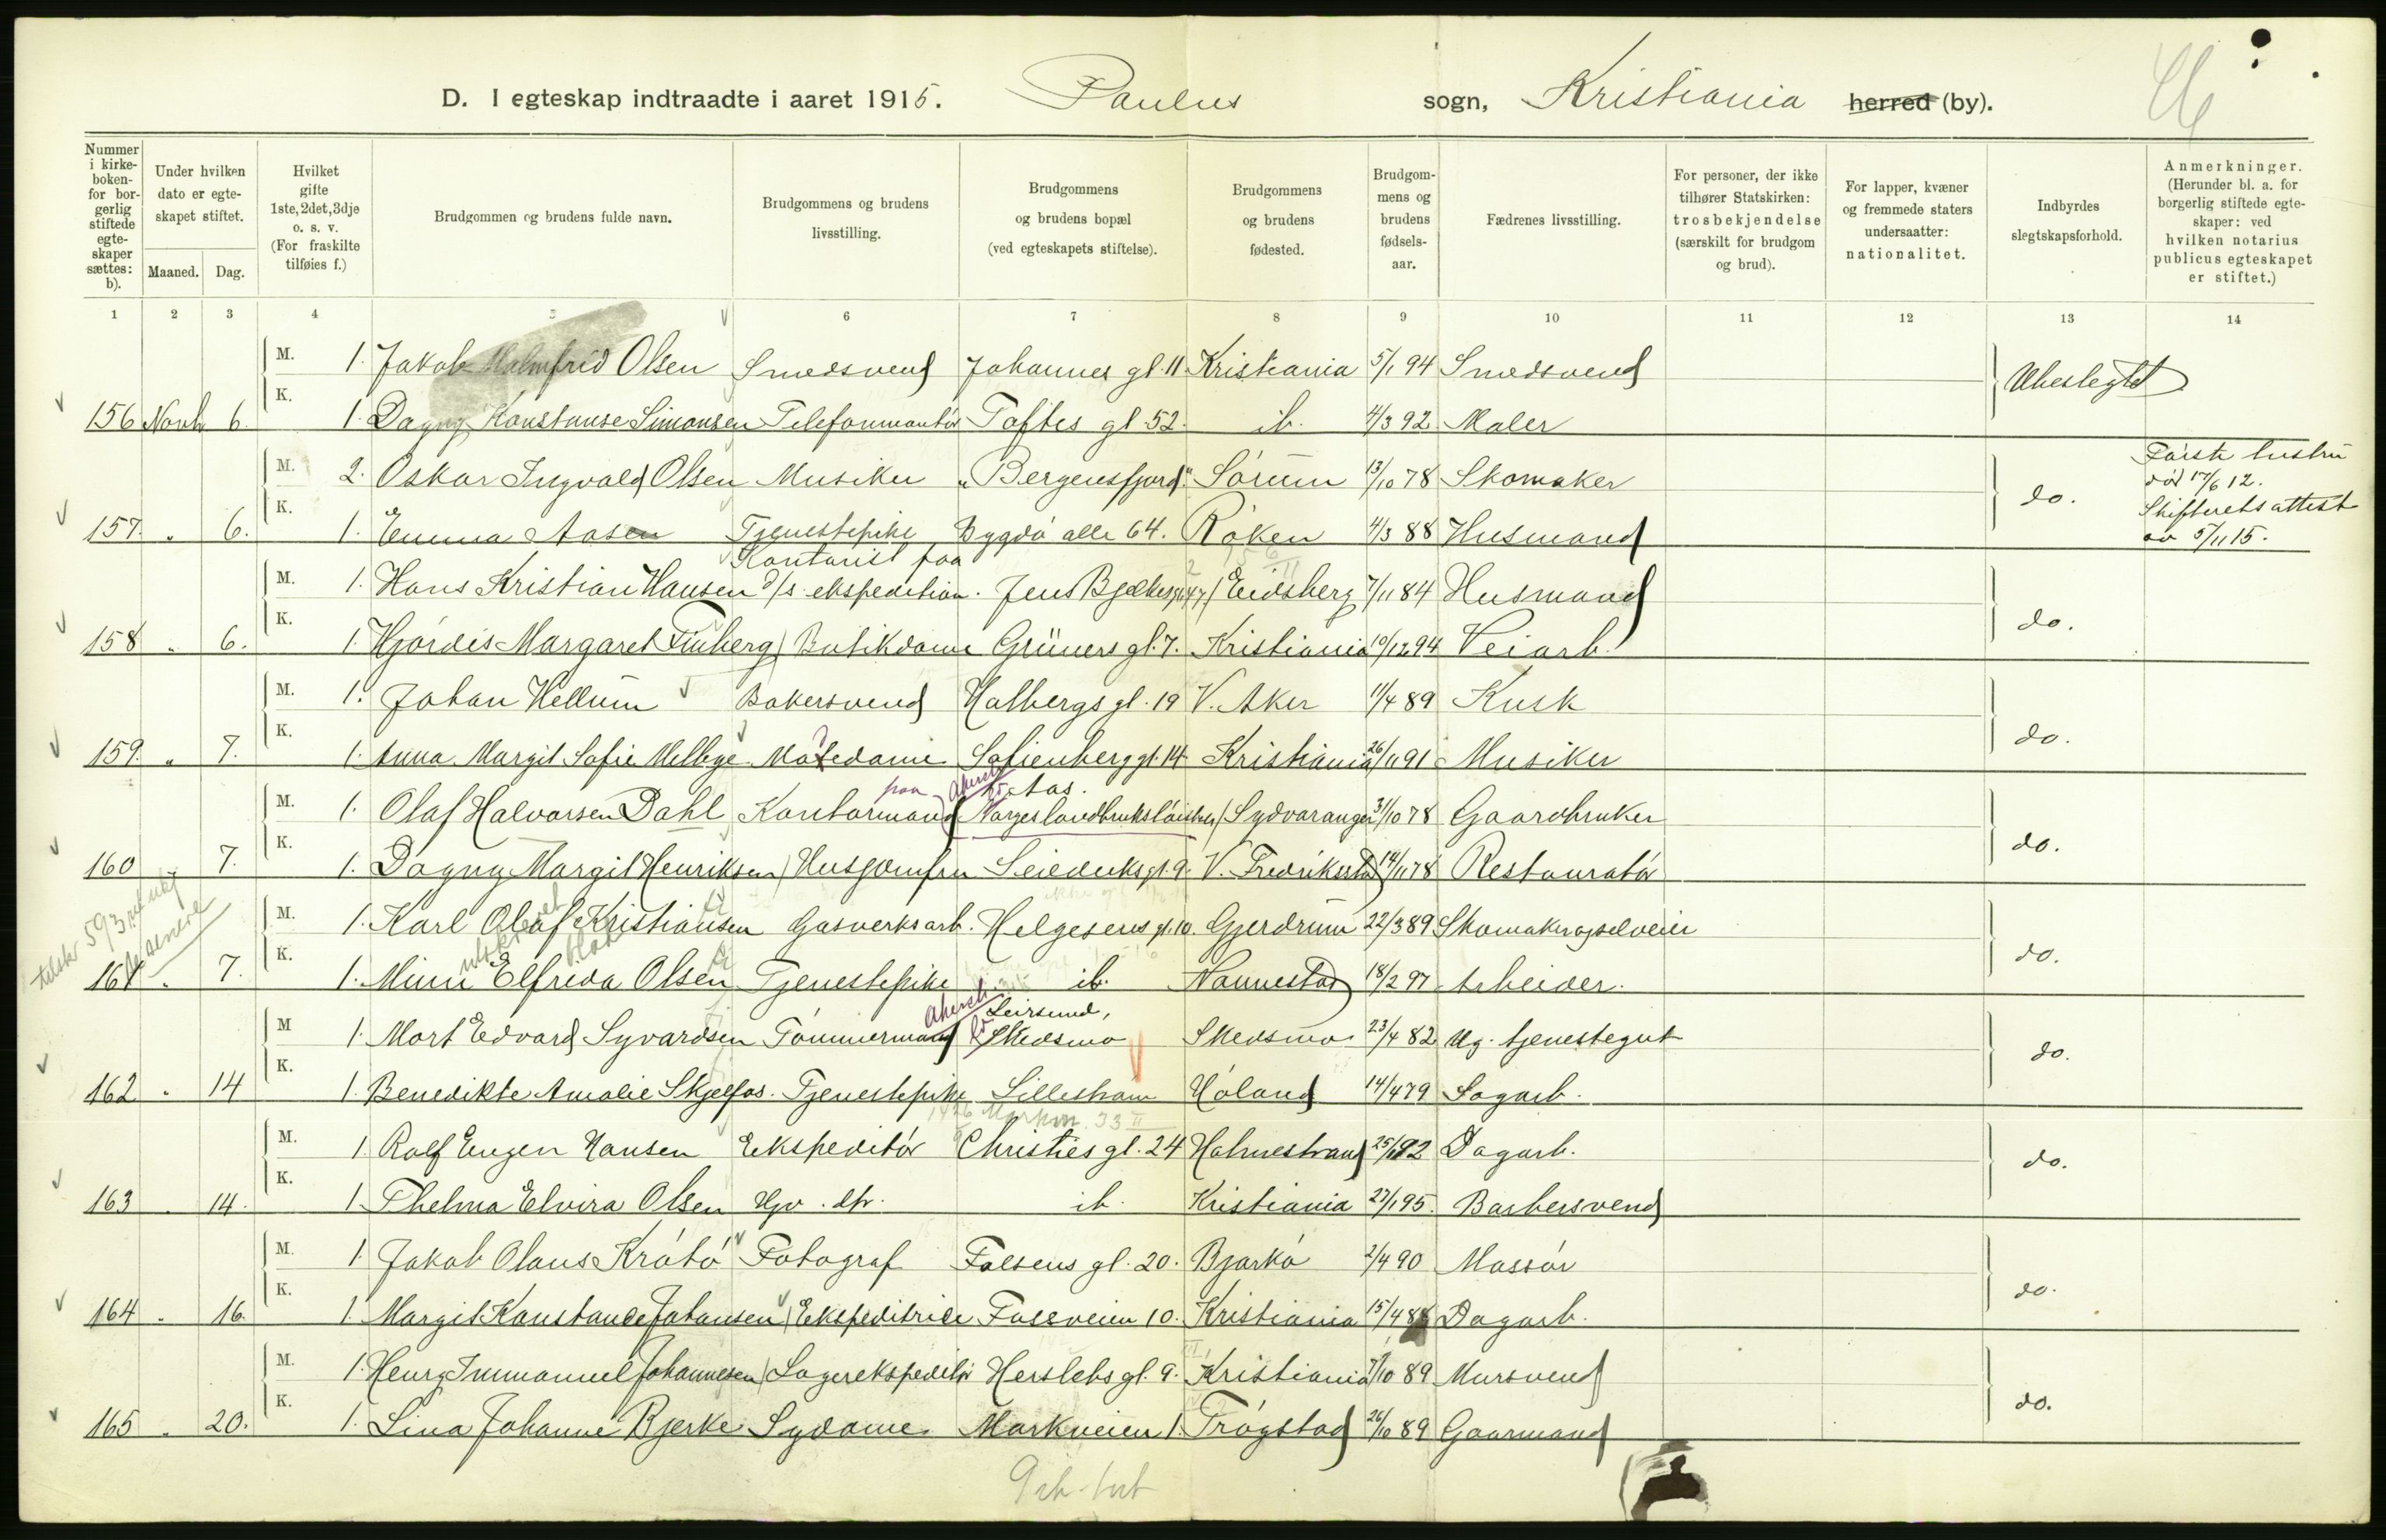 D. I egteskap indtraadte i aaret 1915. Paulus sogn, Kristiania herred (by).
Nummer i kirke-boken- for bor-gerlig stiftede egte-skaper sættes: b).
Under hvilken dato er egte-skapet stiftet.
Maaned. Dag.
Hvilket gifte 1ste, 2det, 3dje o. s. v. (For fraskilte tilføies f.)
Brudgommen og brudens fulde navn.
Brudgommens og brudens livsstilling.
Brudgommens og brudens bopæl (ved egteskapets stiftelse).
Brudgommens og brudens fødested.
Brudgom-mens og brudens fødsels-aar.
Fædrenes livsstilling.
For personer, der ikke tilhører Statskirken: trosbekjendelse (særskilt for brudgom og brud).
For lapper, kvæner og fremmede staters undersaatter: nationalitet.
Indbyrdes slegtskapsforhold.
Anmerkninger. (Herunder bl. a. for borgerlig stiftede egte-skaper: ved hvilken notarius publicus egteskapet er stiftet.)
1 2 3 4 5 6 7 8 9 10 11 12 13 14
M. 1. Jakob Holmfrid Olsen Smedsvend Johannes gt. 11 Kristiania 5/1 94 Smedsvend Ubeslegtet
156 Novb 6. K. 1. Dagny Konstanse Simonsen Telefonmontør Toftes gt 52. ib. 4/3 92 Maler
M. 2. Oskar Ingvald Olsen Musiker "Bergensfjord". Sørum 13/10 78 Skomaker do. Første hustru død 17/6 12. Skifterets attest av 5/11 15.
157. " 6. K. 1. Emma Aasen Tjenestepike Bygdø alle 64. Røken 4/3 88 Husmand
M. 1. Hans Kristian Hansen Kontorist paa d/s ekspedition. Jens Bjelkes gt 47 Eidsberg 7/11 84 Husmand do.
158 " 6. K. 1. Hjørdis Margaret Finberg Butikdame Grüners gt. 7. Kristiania 10/12 94 Veiarb.
M. 1. Johan Hellum Bakersvend Holbergs gt. 19 V. Aker 11/4 89 Kusk do.
159. " 7. K. 1. Anna Margit Sofie Melbye Motedame Sofienberg gt. 14. Kristiania 26/11 91 Musiker
M. 1. Olaf Halvorsen Dahl Kontormand paa Norges landbrukshøiskole Aas. Sydvaranger 31/10 78 Gaardbruker do.
160 " 7. K. 1. Dagny Margit Henriksen Husjomfru Seieduks gt. 9. V. Fredrikstad 14/11 78 Restauratør
M. 1. Karl Olaf Kristiansen Gasverksarb. Helgesens gt. 10. Gjerdrum 22/3 89 Skomaker og selveier do.
161 " 7. K. 1. Minni Elfrida Olsen Tjenestepike ib. Nannestad 18/2 97 Arbeider.
M 1. Mort Edvard Syvardsen Tømmermand Leirsund, Skedsmo Skedsmo 23/4 82 Ug. tjenestegut do.
162 " 14 K. 1. Benedikte Amalie Skjelfos. Tjenestepike Lillestrøm Høland 14/4 79 Sagarb.
M. 1. Rolf Eugen Hansen Ekspeditør Christies gt. 24 Holmestrand 25/1 92 Dagarb. do.
163 " 14. K. 1. Thelma Elvira Olsen Hjv. dtr. ib. Kristiania 27/1 95. Barbersvend
M. 1. Jakob Olaus Krøtø Fotograf Falsens gt. 20. Bjarkø 2/4 90 Massør do.
164 " 16. K. 1. Margit Konstance Johansen Ekspeditrice Fossveien 10. Kristiania 15/4 88 Dagarb.
M. 1. Henry Immanuel Johannesen Lagerekspeditør Herslebs gt. 9. Kristiania 7/10 89 Mursvend do.
165 " 20. K. 1. Lina Johanne Bjerke Sydame. Markveien 1. Trøgstad 26/10 89 Gaarmand